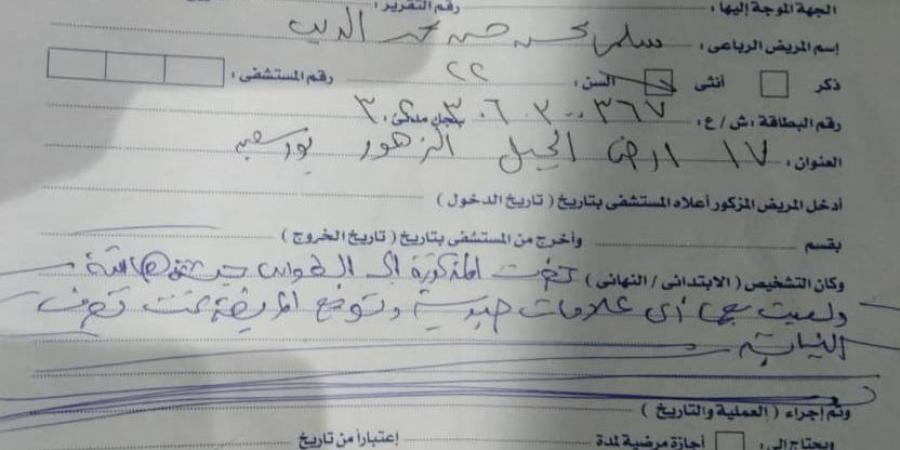 الجهة الموجة إليها : رقم التقرير :
إسم المريض الرباعى : سلمى محسن حسن محمد الديب
ذكر أنثى السن : ٢٢ رقم المستشفى :
رقم البطاقة : ش / ع : سجل مدنى :
العنوان : ١٧ ارض الجبل الزهور بورسعيد
أدخل المريض المزكور أعلاه المستشفى بتاريخ ( تاريخ الدخول )
بقسم وأخرج من المستشفى بتاريخ ( تاريخ الخروج )
وكان التشخيص ( الابتدائى / النهائى ) حضرت المذكورة الى الطوارئ جثة هامدة
وليست بها أى علامات حيوية وتوضع المريضة تحت تصرف
النيابة
وتم إجراء ( العملية والتاريخ )
ويحتاج إلى : أجازة مرضية لمدة إعتباراً من تاريخ